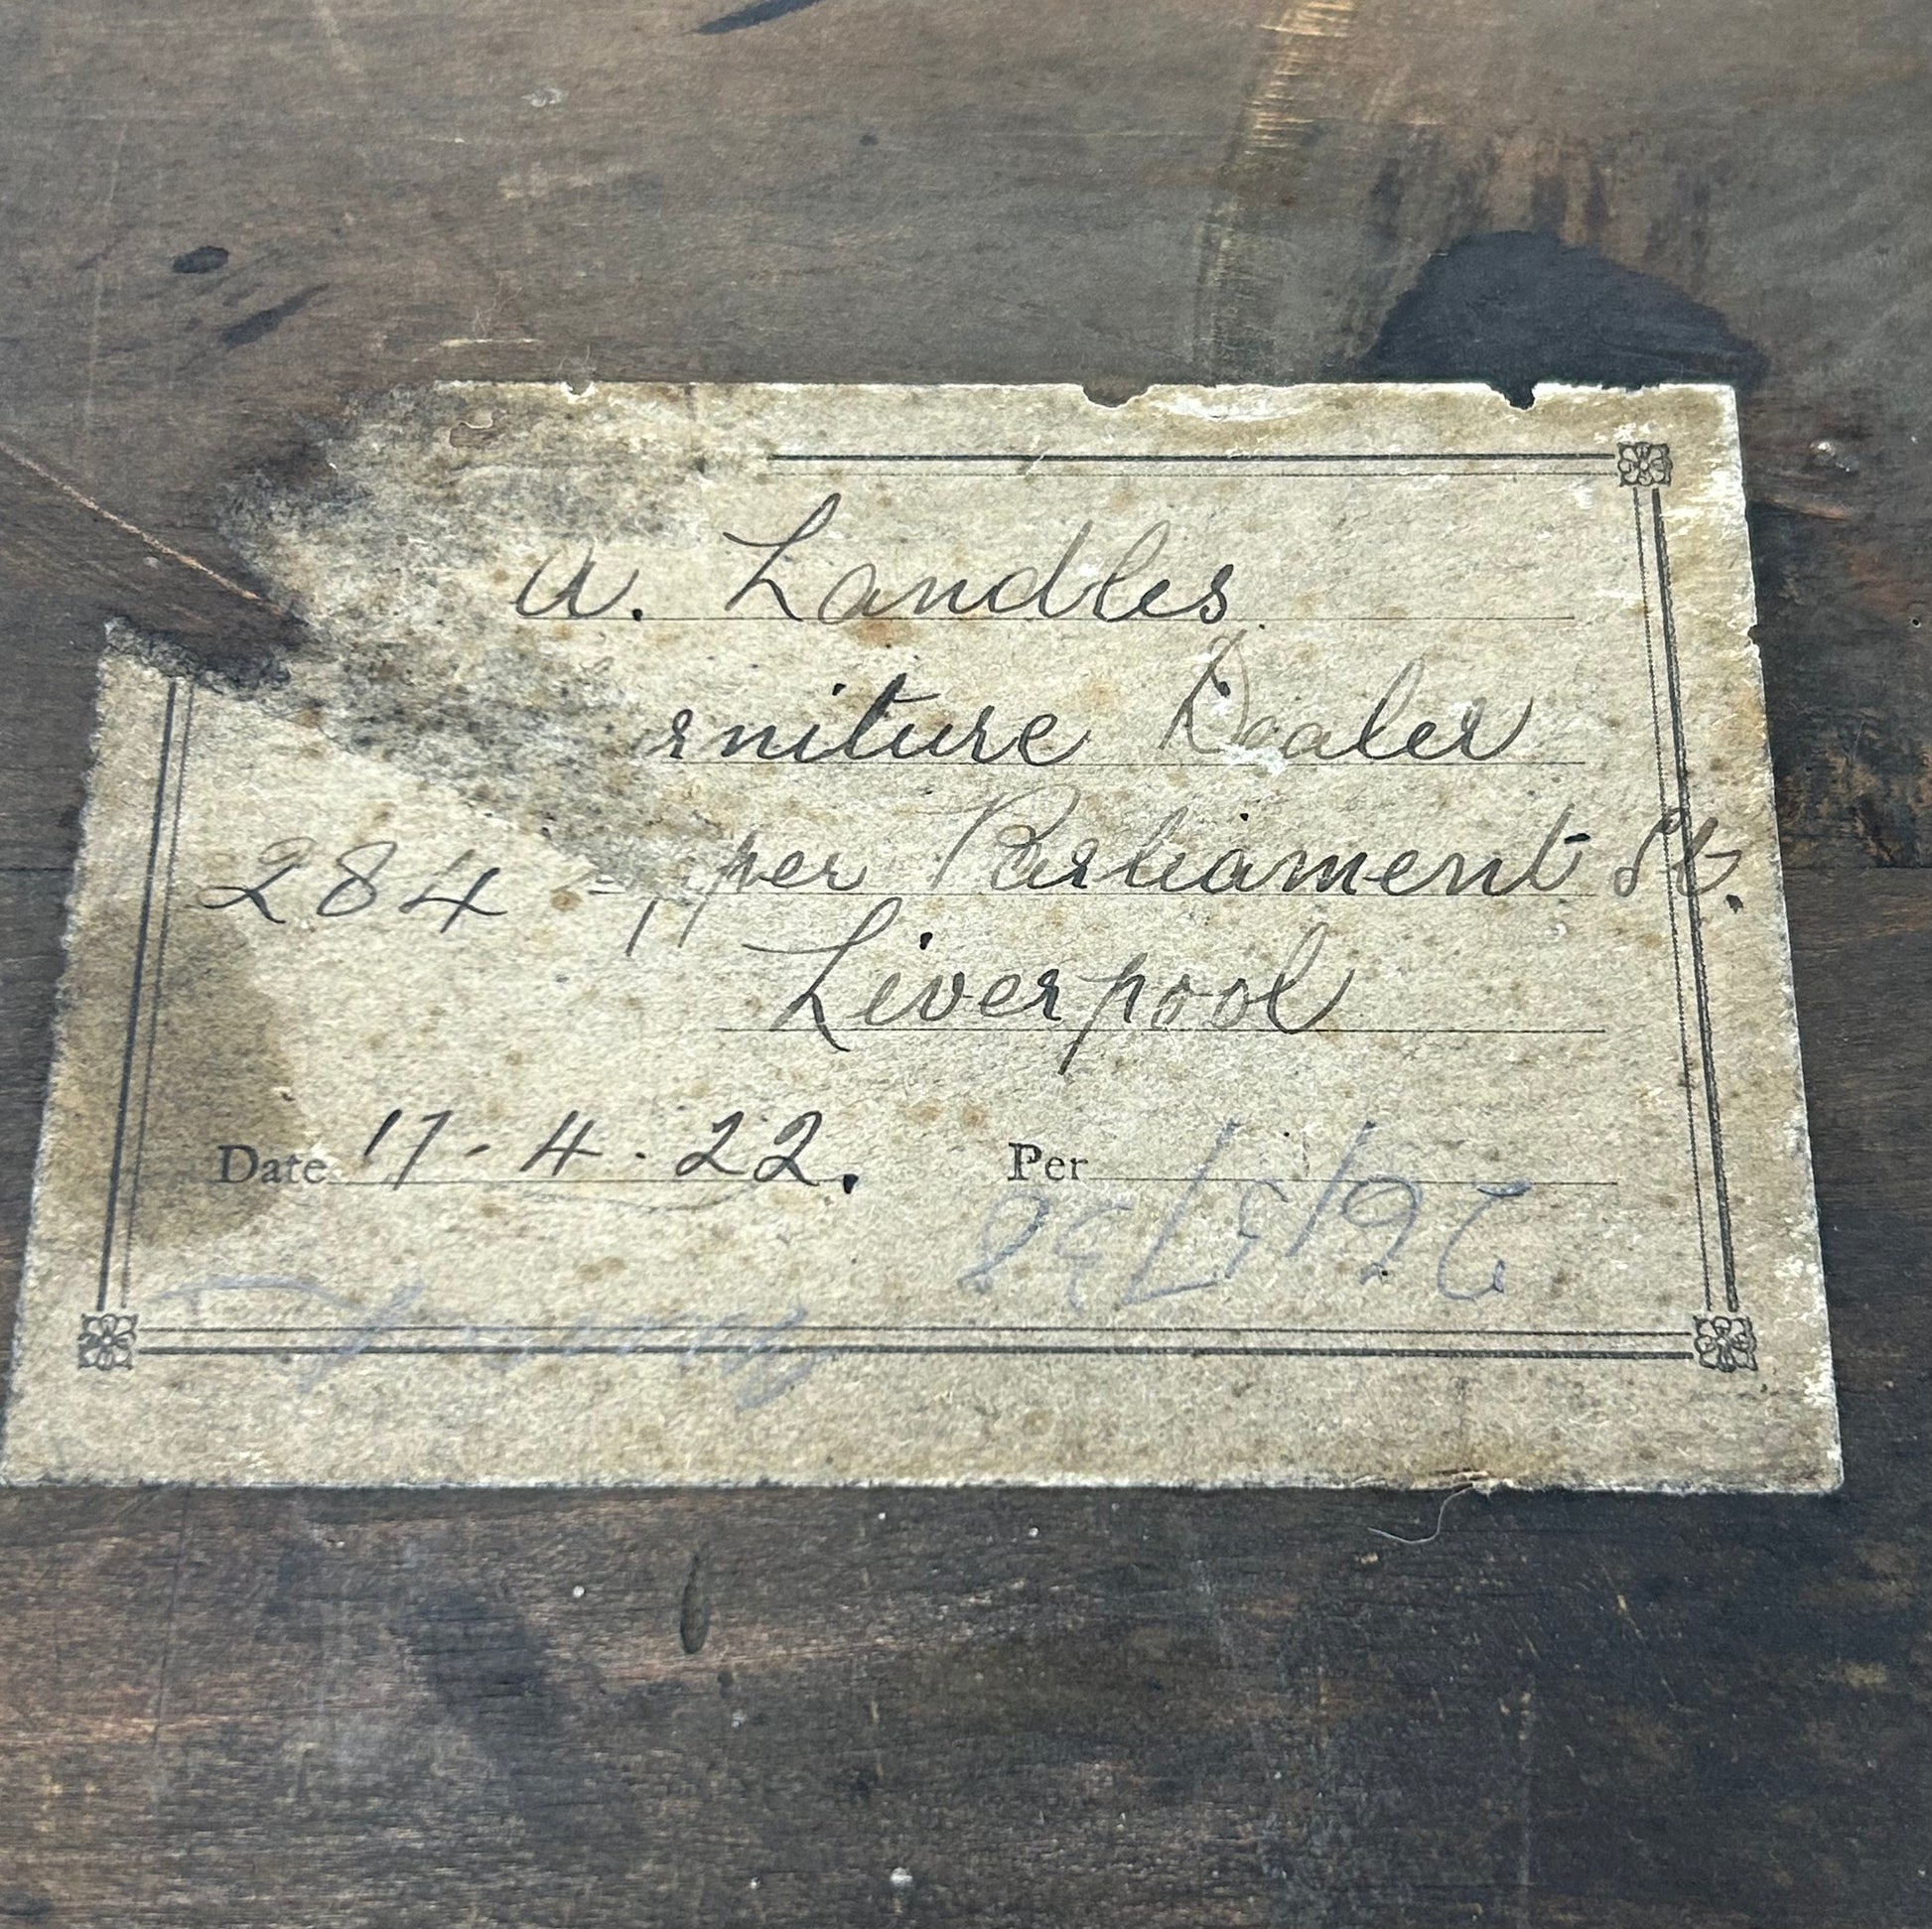 a. Landles
rniture Dealer
284 pper Parliament St.
Liverpool
Date 17-4.22. Per
26/3/38